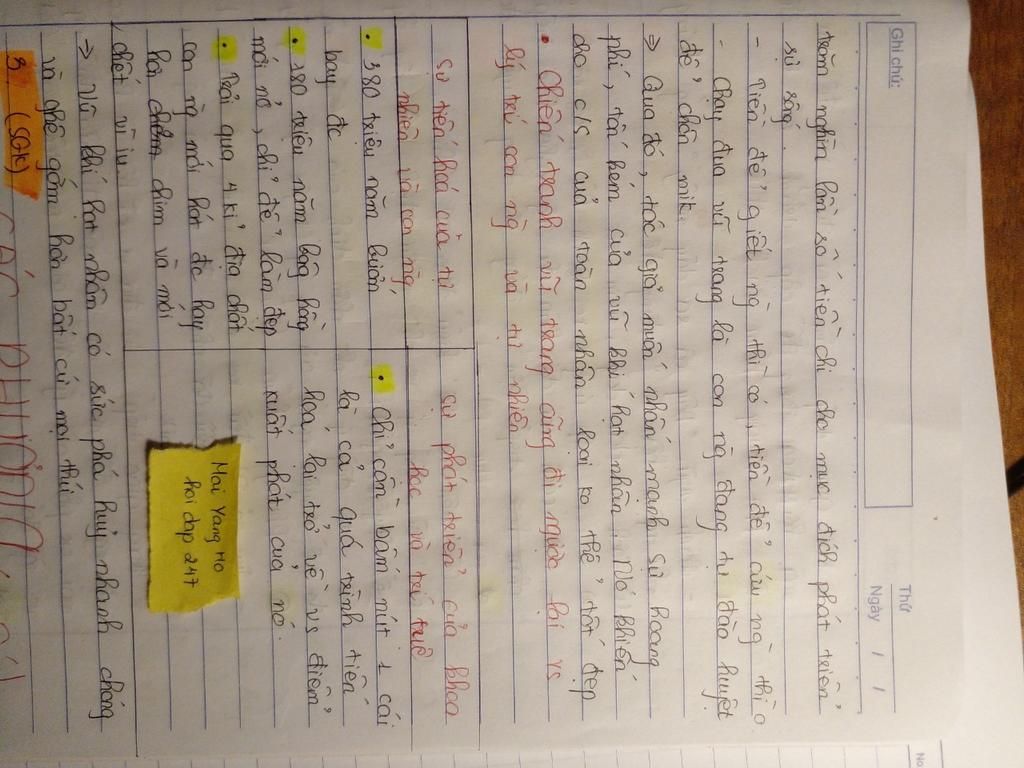 Ghi chú:
Thứ
Ngày / /
No
trăm nghìn lần số tiền chi cho mục đích phát triển
sự sống.
- Tiền để giết ng thì có, tiền để cứu ng thì o
- Chạy đua vũ trang là con ng đang tự đào huyệt
để chôn mik.
⇒ Qua đó, tác giả muốn nhấn mạnh sự hoang
phí, tốn kém của vũ khí hạt nhân. Nó khiến
cho c/s của toàn nhân loại ko thể tốt đẹp
• Chiến tranh vũ trang cũng đi ngược lại vs
lý trí con ng và tự nhiên
sự tiến hoá của tự
nhiên và con ng
• 380 triệu năm bướm
bay đc
• 180 triệu năm bông hồng
mới nở, chỉ để làm đẹp
• Trải qua 4 kỉ địa chất
con ng mới hát đc hay
hơi chim và mới
chết vì iu
sự phát triển của khoa
học và trí tuệ
• Chỉ cần bấm nút 1 cái
là cả quá trình tiến
hoá lại trở về vs điểm
xuất phát của nó.
Mai Yang Ho
hoi dap 247
⇒ Vũ khí hạt nhân có sức phá huỷ nhanh chóng
và ghê gớm hơn bất cứ mọi thứ
3. (SGK)